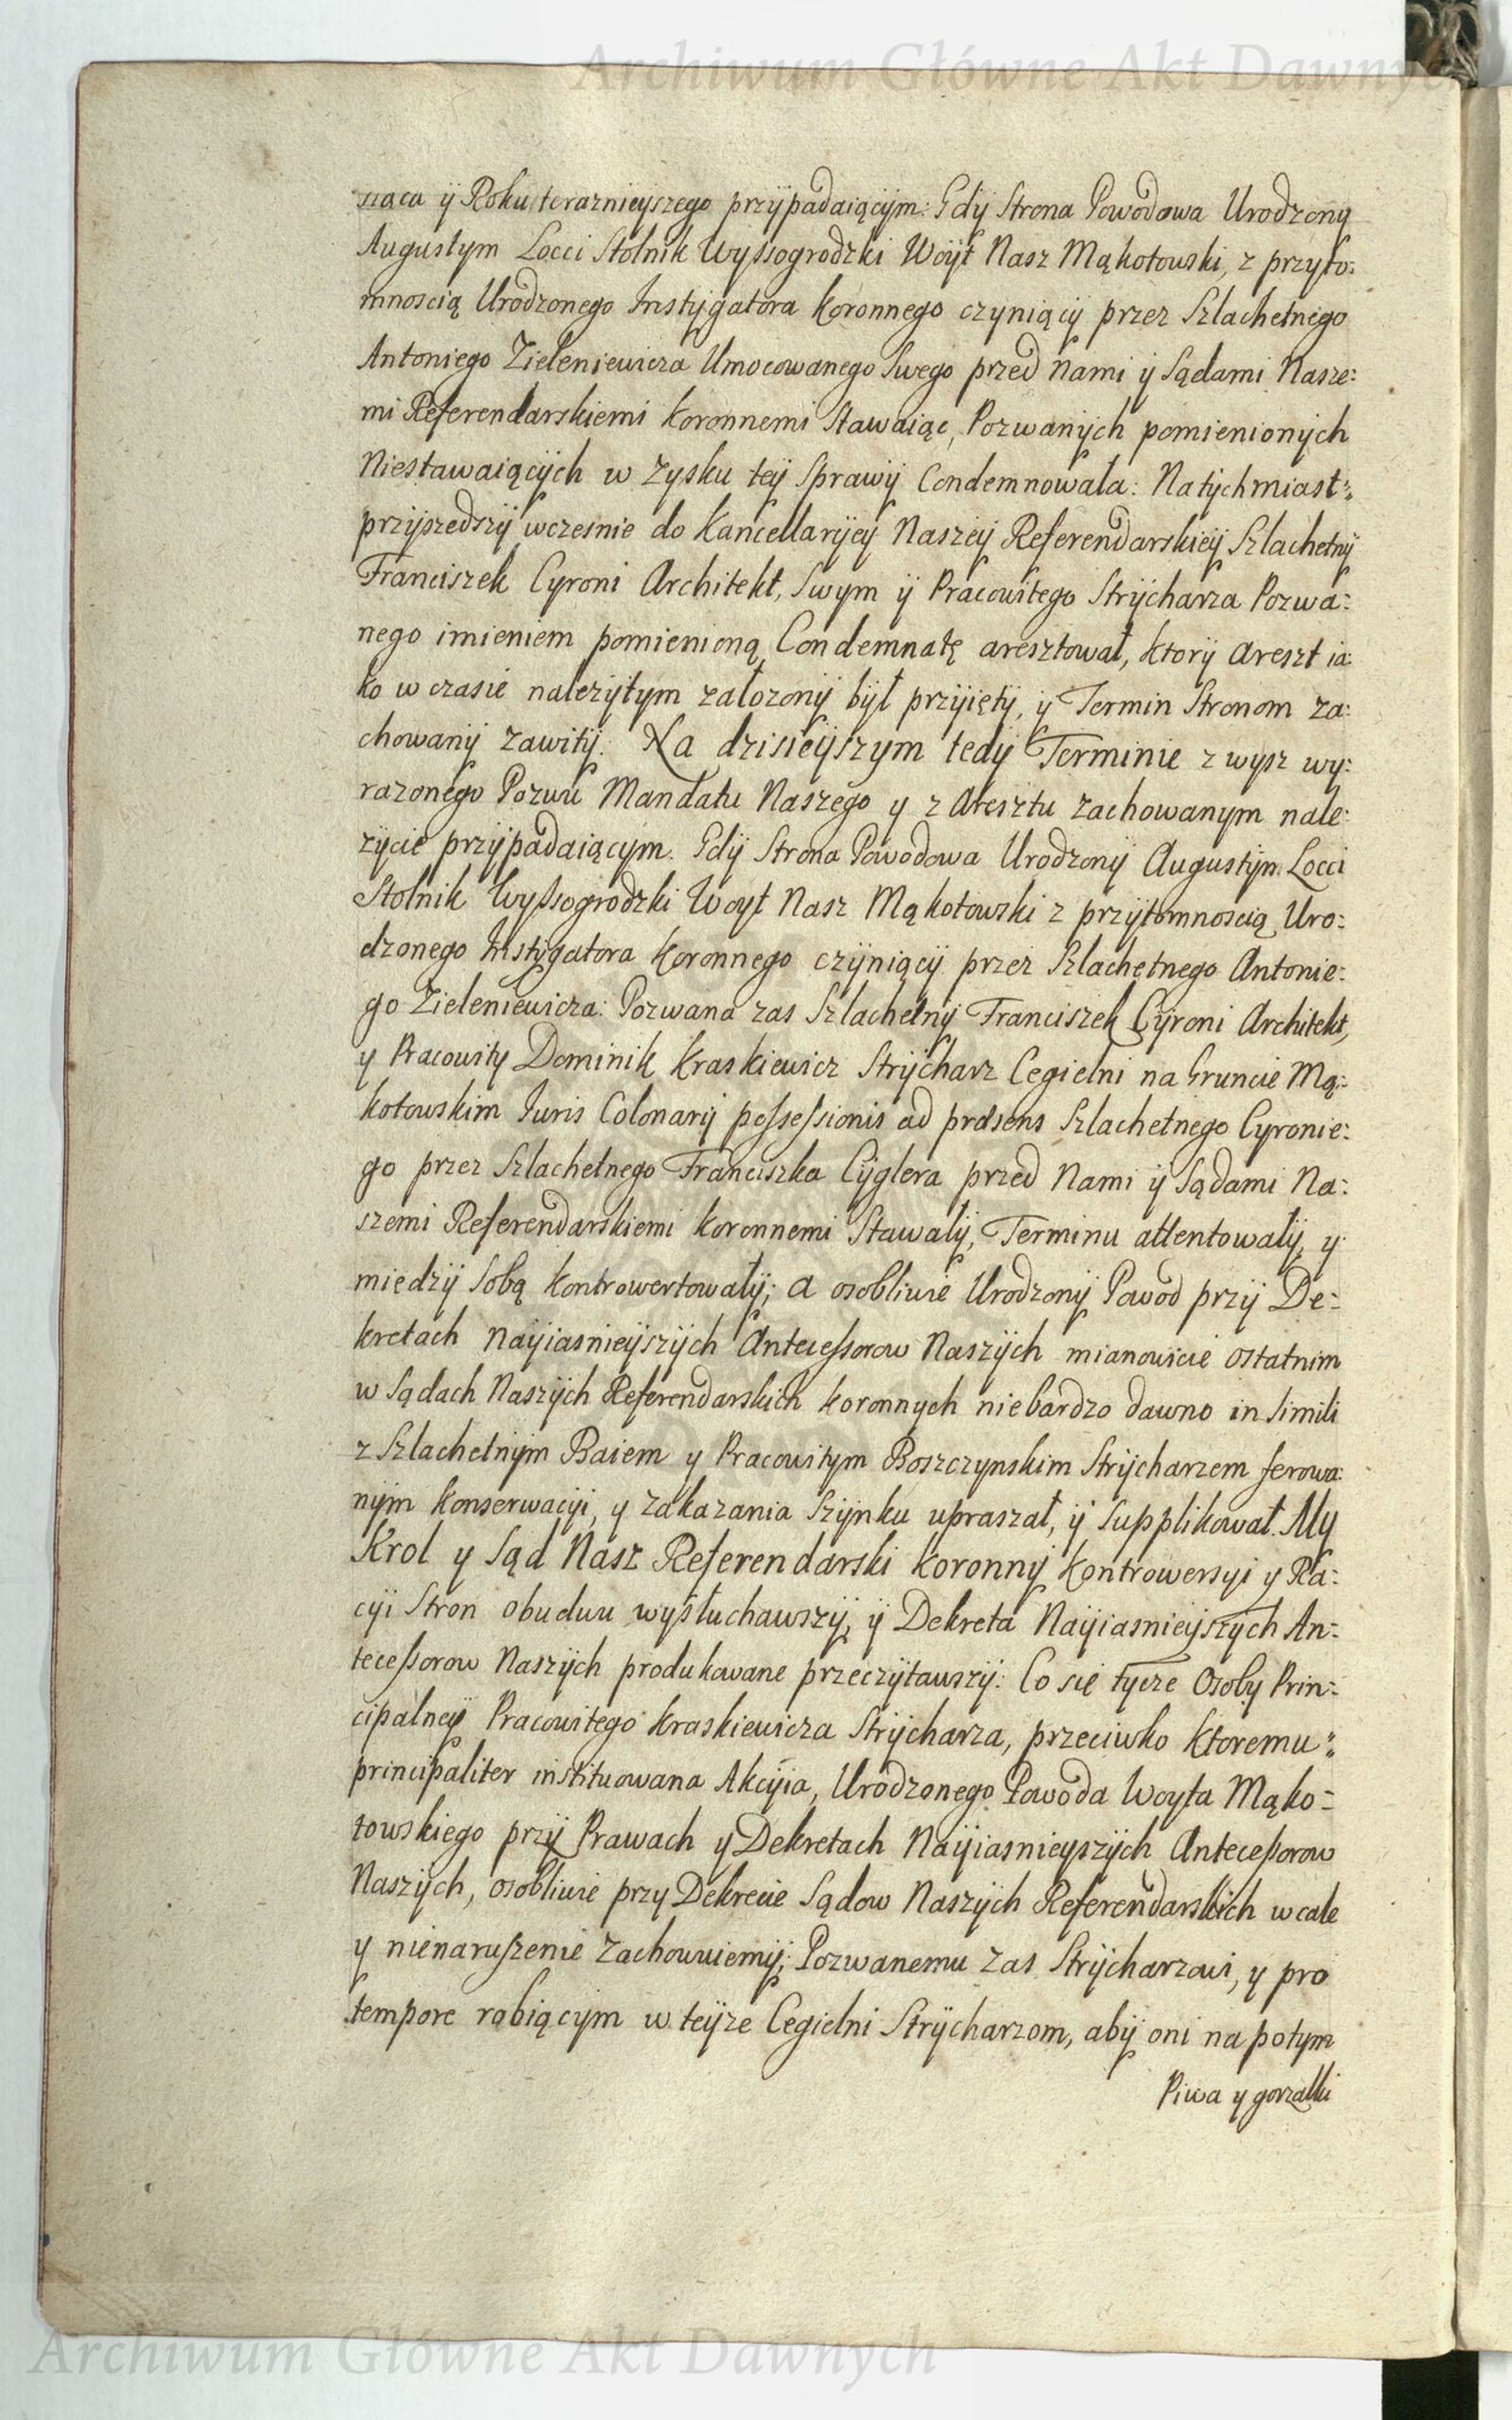 Archiwum Główne Akt Dawnych
siąca ÿ Roku terazniejszego przÿpadaiącÿm: Gdÿ Strona Powodowa Urodzony
Augustym Locci Stolnik Wyssogrodzki Woÿt Nasz Mąkotowski, z przyto:
mnoscią Urodzonego Instÿgatora Koronnego czyniącÿ przez Szlachetnego
Antoniego Zieleniewicza Umocowanego Swego przed Nami ÿ Sądami Nasze:
mi Referendarskiemi Koronnemi Stawaiąc, Pozwanÿch pomienionÿch
Niestawaiącÿch w Zysku teÿ Sprawÿ Condemnowała: Natÿchmiast:,
przÿszedszÿ wczesnie do Kancellarÿeÿ Naszeÿ Referendarskieÿ Szlachetnÿ
Franciszek Cyroni Architekt, Swym ÿ Pracowitego Strÿcharza Pozwa:
nego imieniem pomienioną Condemnatę aresztował, ktorÿ Areszt ia:
ko w czasie nalezÿtym załozonÿ bÿł przÿiętÿ, ÿ Termin Stronom za:
chowanÿ zawitÿ. Na dzisieÿszym tedÿ Terminie z wysz wy:
razonego Pozwu Mandatu Naszego y z Aresztu zachowanym nale:
zÿcie przÿpadaiącym. Gdÿ Strona Powodowa Urodzonÿ Augustÿn Locci
Stolnik Wyssogrodzki Woyt Nasz Mąkotowski z przÿtomnoscią Uro:
dzonego Instÿgatora Koronnego czÿniącÿ przez Szlachetnego Antonie:
go Zieleniewicza: Pozwana zas Szlachetnÿ Franciszek Cÿroni Architekt,
y Pracowity Dominik Kraskiewicz Strÿcharz Cegielni na Gruncie Mą:
kotowskim Iuris Colonarÿ possessionis ad præsens Szlachetnego Cyronie:
go przez Szlachetnego Franciszka Cÿglera przed Nami ÿ Sądami Na:
szemi Referendarskiemi Koronnemi Stawałÿ, Terminu attentowałÿ, y
miedzÿ Sobą Kontrowertowałÿ; a osobliwie Urodzonÿ Powod przÿ De:
kretach Naÿiasnieÿszÿch Antecessorow Naszÿch mianowicie ostatnim
w Sądach Naszÿch Referendarskich Koronnych niebardzo dawno in simili
z Szlachetnÿm Baiem y Pracowitym Boszczynskim Strÿcharzem ferowa:
nÿm Konserwacÿi, y zakazania Szÿnku upraszał, ÿ Supplikował. My
Krol y Sąd Nasz Referendarski Koronnÿ Kontrowersyi y Ra:
cÿi Stron obuduu wysłuchawszÿ, ÿ Dekreta Naÿiasnieÿszÿch An:
tecessorow Naszÿch produkowane przeczÿtawszÿ: Co się tycze Osoby Prin:
cipalneÿ Pracowitego Kraskiewicza Strÿcharza, przeciwko ktoremu:,
principaliter instituowana Akcÿia, Urodzonego Powoda Woyta Mąko:
towskiego przÿ Prawach y Dekretach Naÿiasnieyszÿch Antecessorow
Naszÿch, osobliwie przy Dekrecie Sądow Naszÿch Referendarskich wcale
y nienaruszenie zachowuiemÿ; Pozwanemu zas Strÿcharzowi, y pro
tempore robiącÿm w teÿze Cegielni Strÿcharzom, abÿ oni na potym
Piwa y gorzałki
Archiwum Główne Akt Dawnych